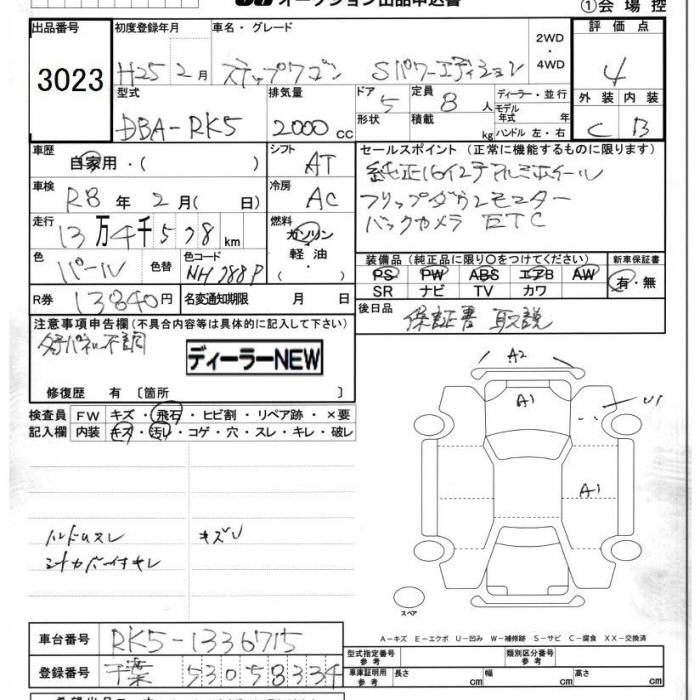 オークション出品申込書
①会場控
出品番号 初度登録年月 車名・グレード 2WD・4WD 評価点
3023 H25 2月 ステップワゴン Sパワーエディション 4
型式 排気量 ドア 5 定員 8人 ディーラー・並行 外装 内装
DBA-RK5 2000 cc 形状 積載 kg モデル年式 年 ハンドル 左・右 C B
車歴 自家用・( ) シフト AT セールスポイント (正常に機能するものに限ります)
純正16インチアルミホイール
車検 R8年 2月( 日) 冷房 AC フリップダウンモニター
走行 13万4千578km 燃料 ガソリン・軽油・ バックカメラ ETC
色 パール 色替 色コード NH788P
装備品(純正品に限り○をつけてください) 新車保証書
PS PW ABS エアB AW 有・無
SR ナビ TV カワ
R券 13840円 名変通知期限 月 日 後日品 保証書 取説
注意事項申告欄(不具合内容等は具体的に記入して下さい)
不調
ディーラーNEW
修復歴 有〔箇所 〕
検査員 FW キズ・飛石・ヒビ割・リペア跡・×要
記入欄 内装 キズ・汚レ・コゲ・穴・スレ・キレ・破レ
A2
A1
U1
A1
ハンドルスレ キズU
シートカバー付キレ
スペア
A-キズ E-エクボ U-凹み W-補修跡 S-サビ C-腐食 XX-交換済
車台番号 RK5-1336715
型式指定番号 参考 類別区分番号 参考
登録番号 千葉 530 5 8334
車庫証明用 参考 長さ cm 幅 cm 高さ cm